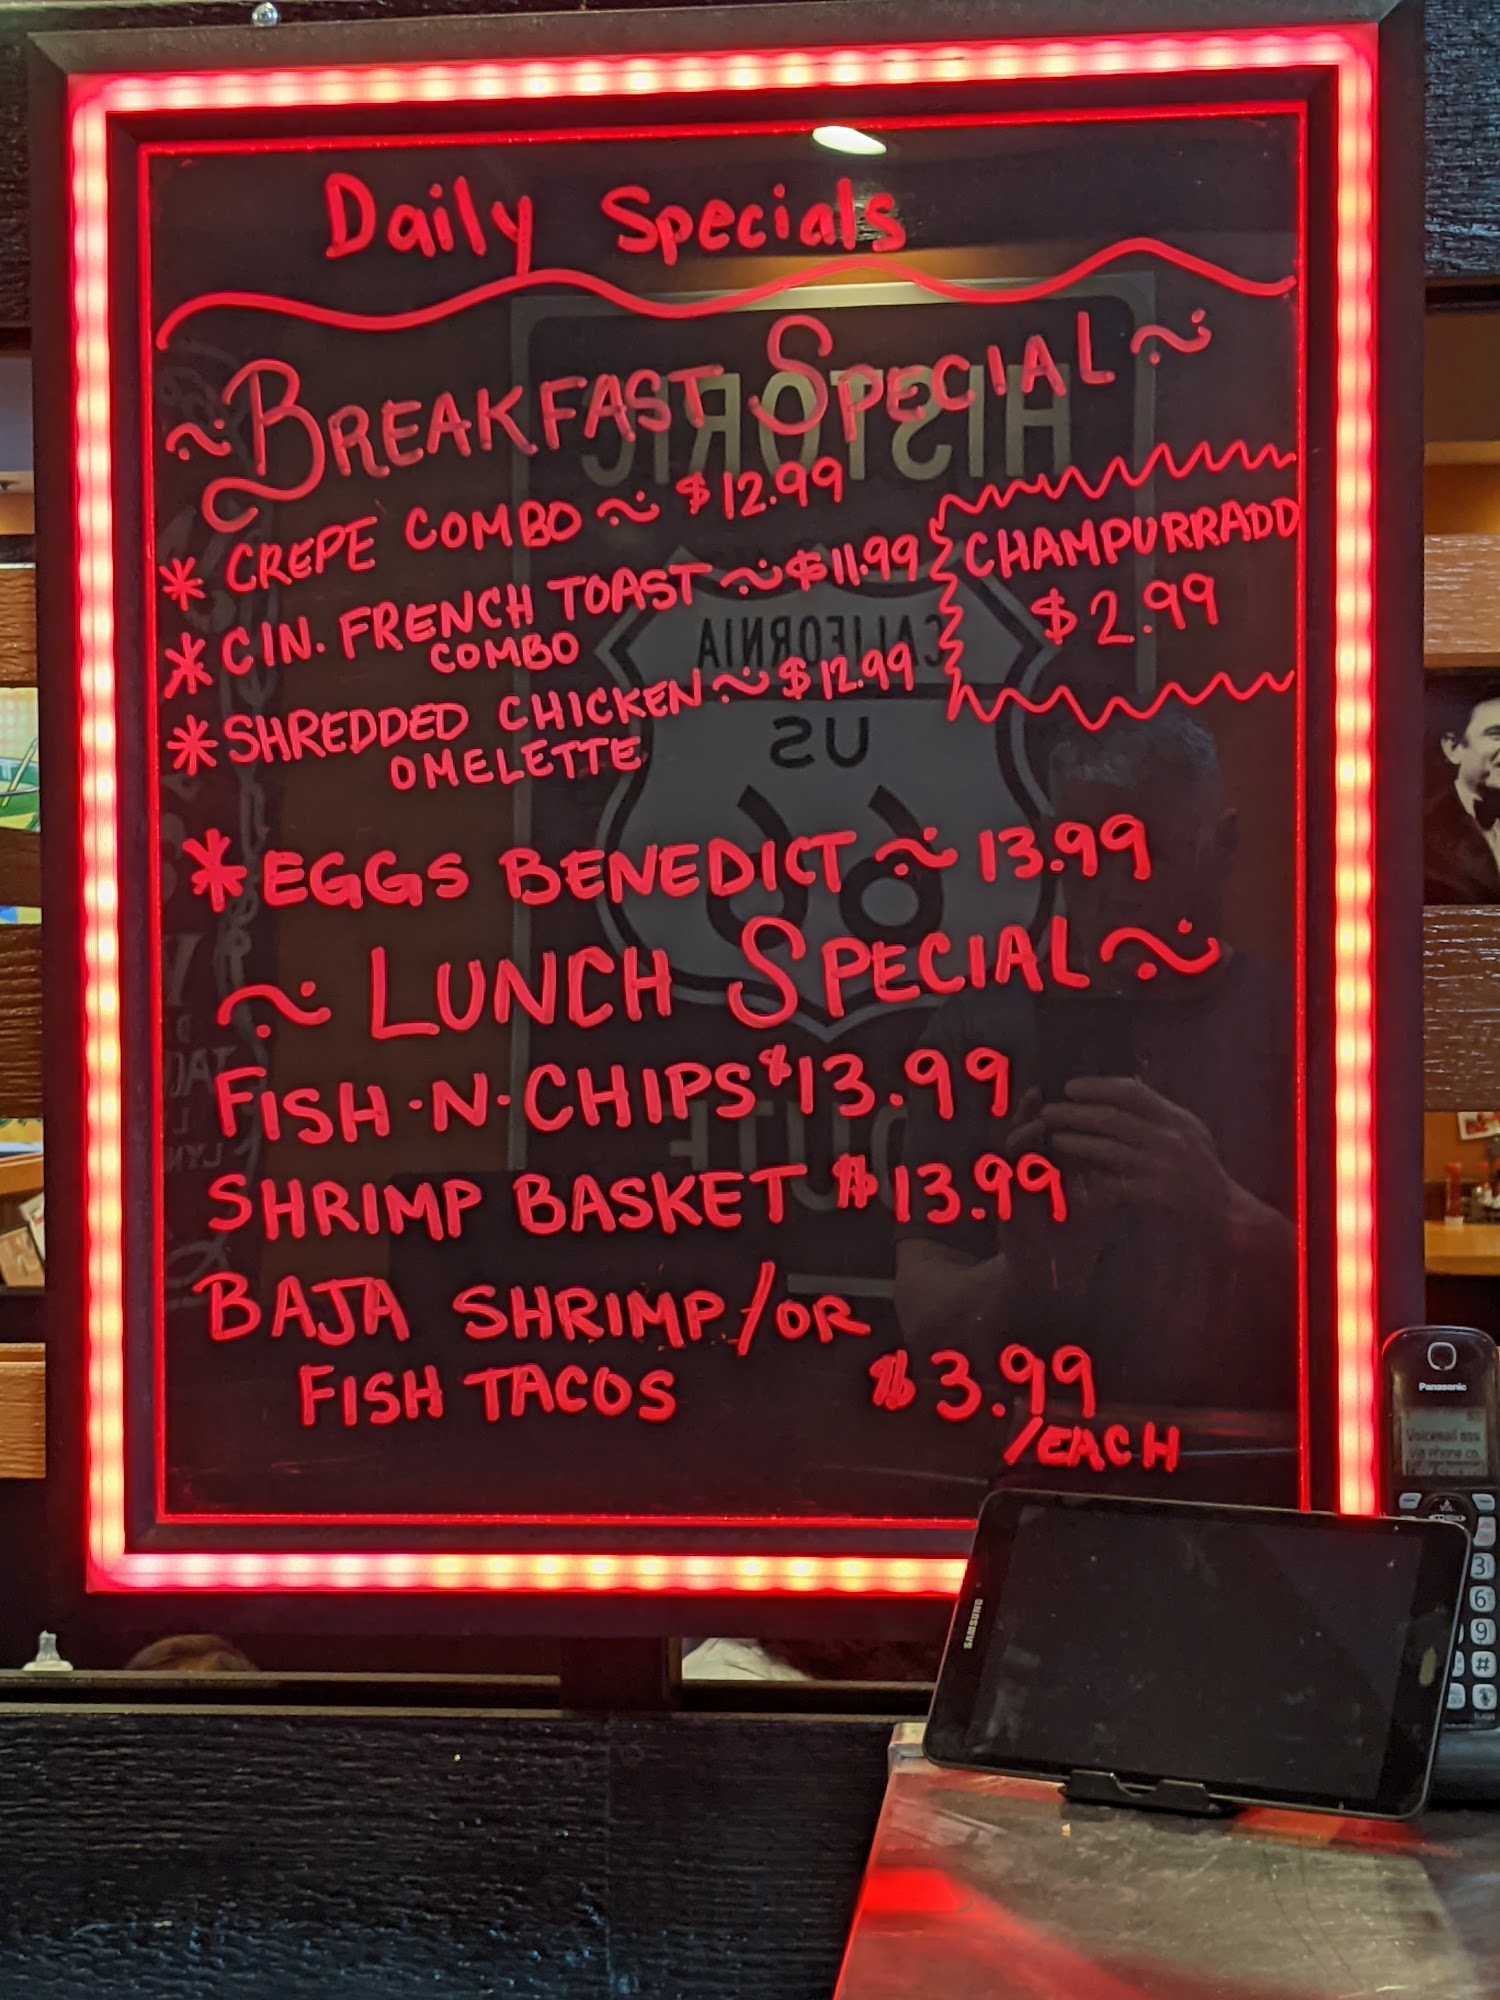 Daily Specials
~BREAKFAST SPECIAL~
* CREPE COMBO ~ $12.99
* CIN. FRENCH TOAST ~ $11.99
COMBO
* SHREDDED CHICKEN ~ $12.99
OMELETTE
CHAMPURRADO
$2.99
* EGGS BENEDICT ~ 13.99
~ LUNCH SPECIAL ~
FISH·N·CHIPS $13.99
SHRIMP BASKET $13.99
BAJA SHRIMP/OR
FISH TACOS $3.99
/EACH
HISTORIC
CALIFORNIA
US
66
SAMSUNG
Panasonic
Voicemail
via phone co
3
6
9
#